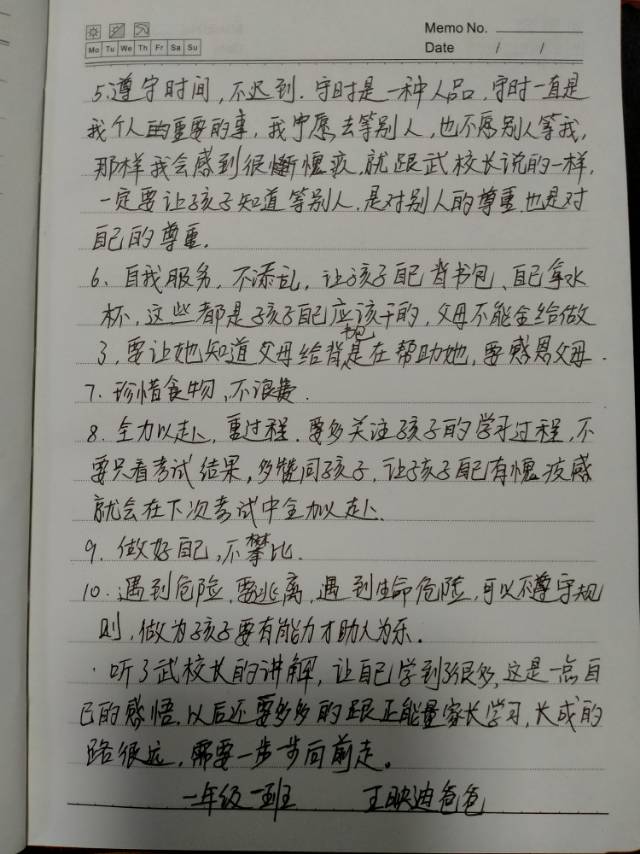 Memo No.
Mo Tu We Th Fr Sa Su
Date / /
5、遵守时间,不迟到.守时是一种人品,守时一直是
我个人的重要的事,我宁愿去等别人,也不愿别人等我,
那样我会感到很惭愧疚,就跟武校长说的一样,
一定要让孩子知道等别人.是对别人的尊重也是对
自己的尊重.
6、自我服务,不添乱,让孩子自己背书包、自己拿水
杯,这些都是孩子自己应该干的,父母不能全给做
了,要让她知道父母给背书包是在帮助她,要感恩父母.
7、珍惜食物,不浪费.
8.全力以赴,重过程.要多关注孩子的学习过程,不
要只看考试结果,多赞同孩子,让孩子自己有愧疚感
就会在下次考试中全力以赴.
9.做好自己,不攀比.
10.遇到危险,要逃离,遇到生命危险,可以不遵守规
则,做为孩子要有能力才助人为乐.
·听了武校长的讲解,让自己学到了很多,这是一点自
己的感悟,以后还要多多的跟正能量家长学习,长成的
路很远,需要一步步向前走。
一年级一班 王映迪爸爸